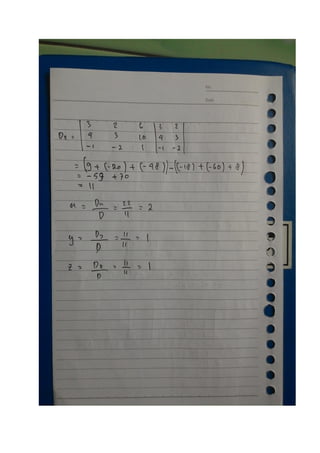 No.
Date
3 2 6 | 3 2
Dz = 4 3 10 | 4 3
-1 -2 1 | -1 -2
= [9 + (-20) + (-48)] - [(-18) + (-60) + 8]
= -59 + 70
= 11
x = Dx/D = 22/11 = 2
y = Dy/D = 11/11 = 1
z = Dz/D = 11/11 = 1